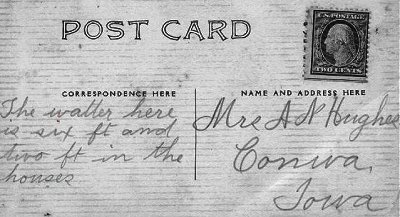 POST CARD
U.S. POSTAGE
TWO CENTS
CORRESPONDENCE HERE
NAME AND ADDRESS HERE
The watter here
is six ft and
two ft in the
houses
Mrs A N Hughes
Conway
Iowa